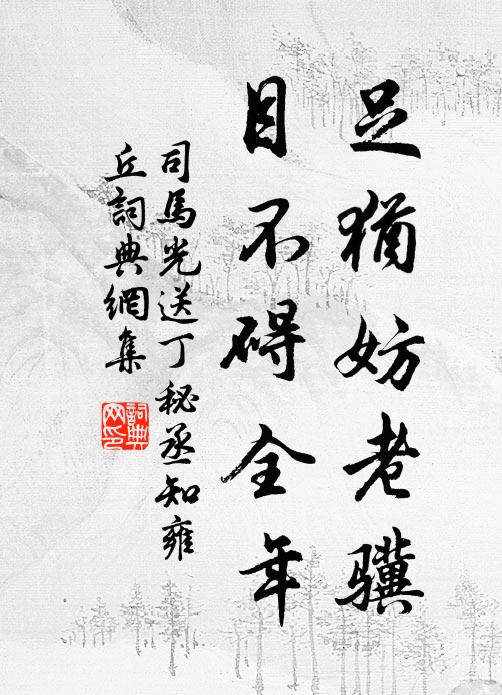 足猶妨老驥
目不碍全年
司馬光送丁秘丞知雍
丘詞典網集
詞典
网印